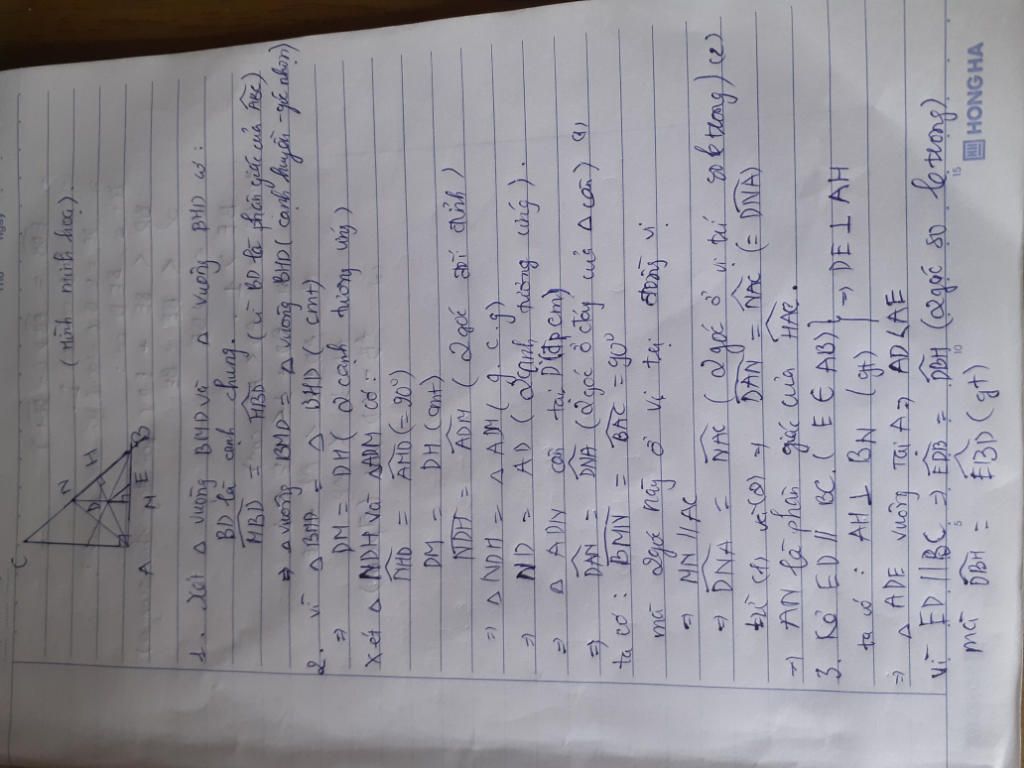 C
N
H
D
A M E B
(Hình minh hoạ)
1. Xét Δ vuông BMD và Δ vuông BHD có:
BD là cạnh chung.
MBD = HBD (Vì BD là phân giác của ABC)
⇒ Δ vuông BMD = Δ vuông BHD (cạnh huyền - góc nhọn)
2. Vì Δ BMD = Δ BHD (cmt)
⇒ DM = DH (2 cạnh tương ứng)
Xét Δ NDH và ΔADM có:
DHD = AHD (= 90°)
DM = DH (cmt)
NDH = ADM (2 góc đối đỉnh)
⇒ Δ NDH = Δ ADM (g.c.g)
⇒ ND = AD (2 cạnh tương ứng).
⇒ Δ ADN cân tại D (đpcm)
⇒ DAN = DNA (2 góc ở đáy của Δ cân) (1)
ta có: BMN = BAC = 90°
mà 2 góc này ở vị trí đồng vị
⇒ MN // AC
⇒ DNA = NAC (2 góc ở vị trí so le trong) (2)
Từ (1) và (2) ⇒ DAN = NAC (= DNA)
⇒ AN là phân giác của HAC.
3. Kẻ ED // BC. (E ∈ AB)
ta có: AH ⊥ BN (gt) } ⇒ DE ⊥ AH
⇒ Δ ADE vuông tại A ⇒ AD < AE
Vì ED // BC ⇒ EDB = DBH (2 góc so le trong)
mà DBH = EBD (gt)
HONG HA
5 10 15